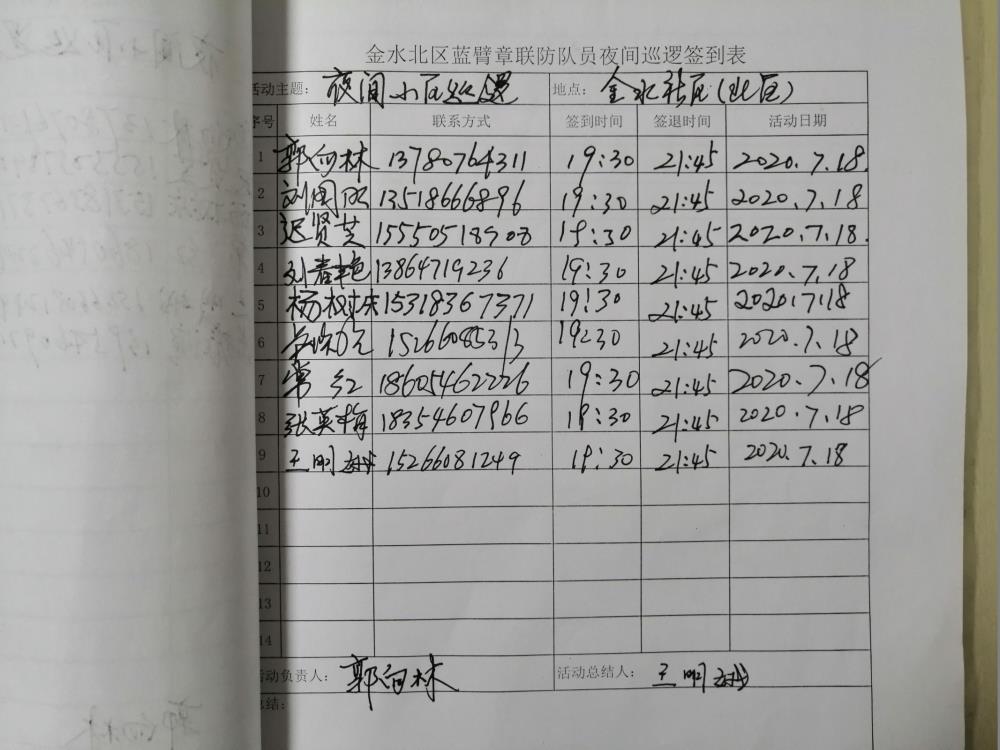 金水北区蓝臂章联防队员夜间巡逻签到表
活动主题: 夜间小区巡逻 地点: 金水社区(北区)
序号 姓名 联系方式 签到时间 签退时间 活动日期
1 郭向林 13780764311 19:30 21:45 2020.7.18.
2 刘国 13518666896 19:30 21:45 2020.7.18
3 迟贤芝 15550518908 19:30 21:45 2020.7.18.
4 刘春艳 13864719236 19:30 21:45 2020.7.18
5 杨树 15318367371 19:30 21:45 2020.7.18
6 15266085313 19:30 21:45 2020.7.18
7 常红 18605462226 19:30 21:45 2020.7.18
8 张英梅 18354607966 19:30 21:45 2020.7.18
9 王明 15266081249 19:30 21:45 2020.7.18
10
11
12
13
14
活动负责人: 郭向林 活动总结人: 王明
总结: